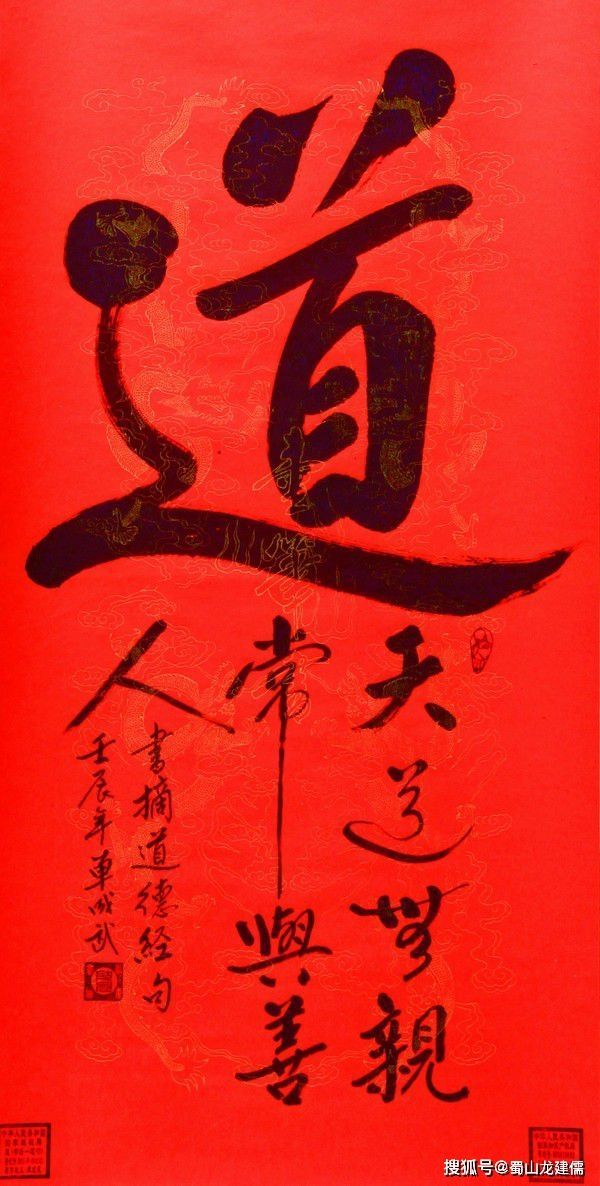 道
天道無親
常與善
人
書摘道德經句
壬辰年車成武
搜狐号@蜀山龙建儒